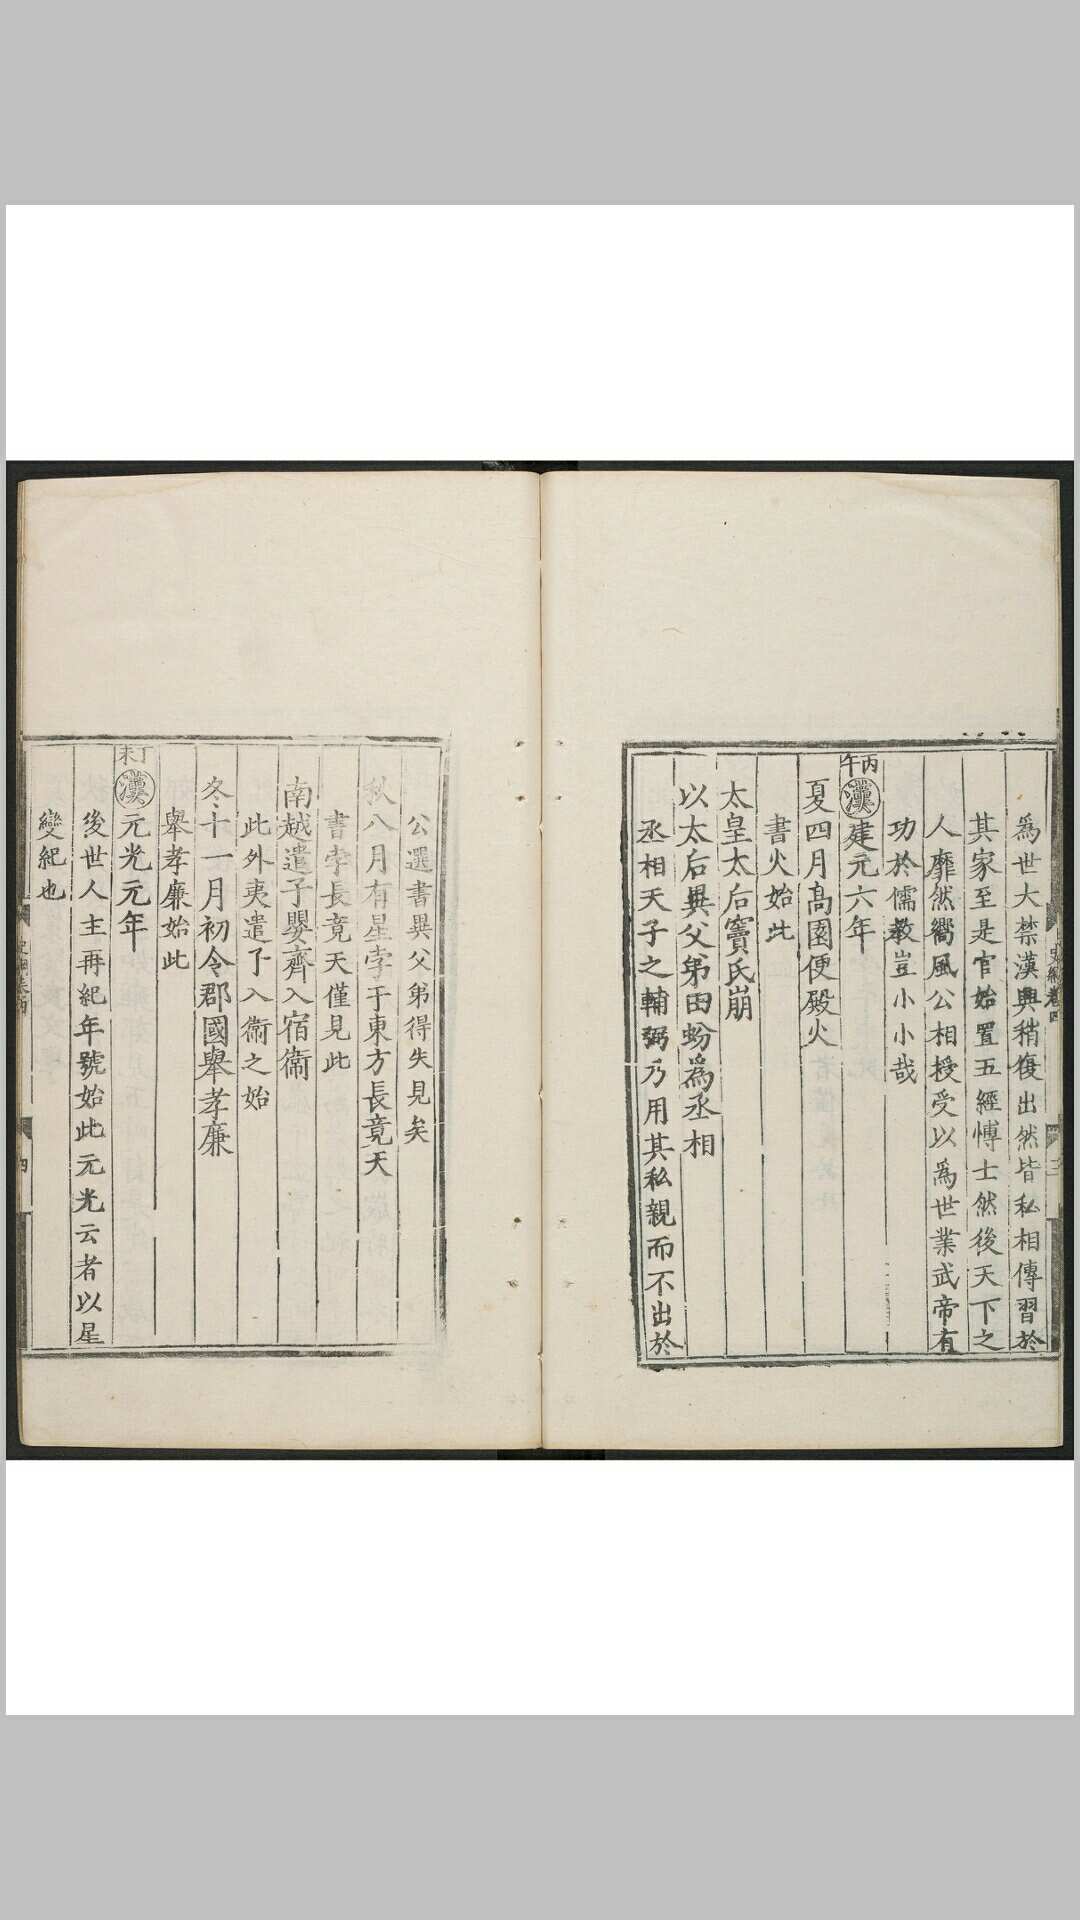 為世大禁漢興稍復出然皆私相傳習於
其家至是官始置五經博士然後天下之
人靡然嚮風公相授受以為世業武帝有
功於儒教豈小小哉
丙午
漢建元六年
夏四月高園便殿火
書火始此
太皇太后竇氏崩
以太后異父弟田蚡為丞相
丞相天子之輔弼乃用其私親而不出於
公選書異父弟得失見矣
秋八月有星孛于東方長竟天
書孛長竟天僅見此
南越遣子嬰齊入宿衞
此外夷遣子入衞之始
冬十一月初令郡國舉孝廉
舉孝廉始此
丁未
漢元光元年
後世人主再紀年號始此元光云者以星
變紀也